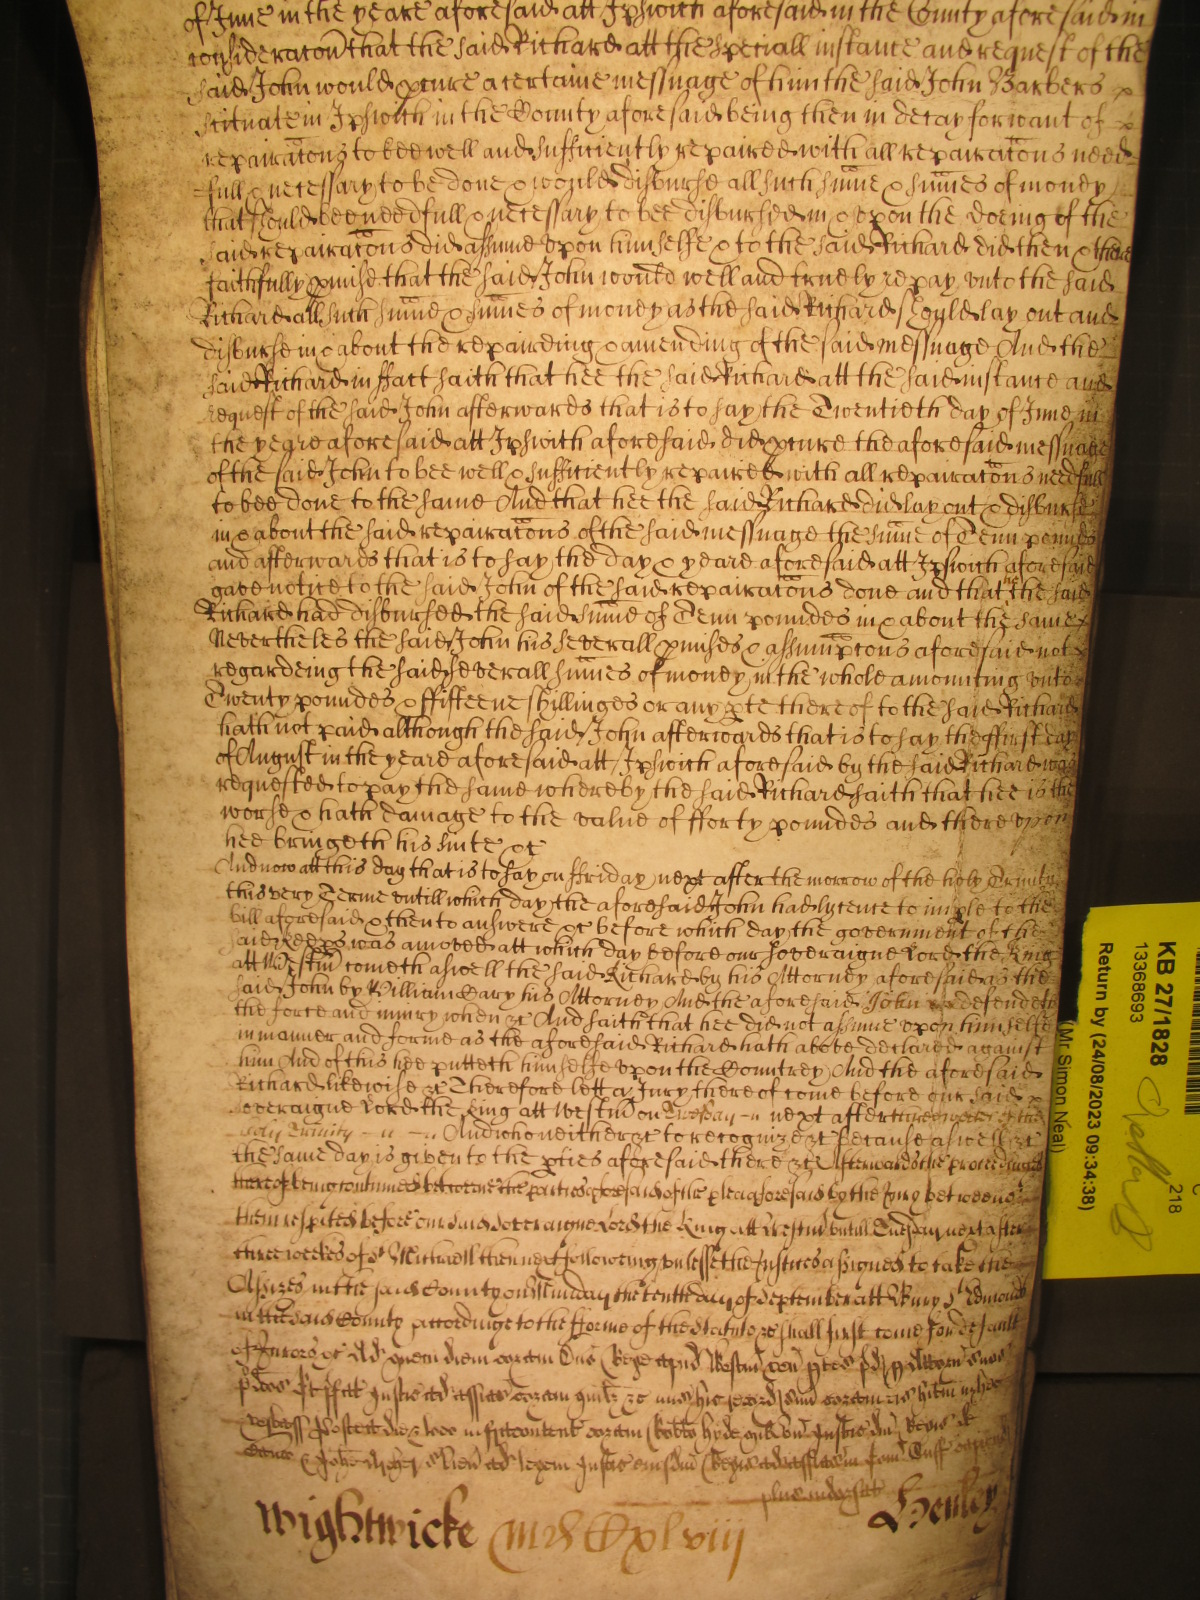 of June in the yeare aforesaid att Ipswich aforesaid in the County aforesaid in
consideracon that the said Richard att the speciall instance and request of the
said John would pcure a certaine messuage of him the said John Barbers
scituate in Ipswich in the County aforesaid being then in decay for want of
repairacons to bee well and sufficiently repaired with all repairacons need-
full & necessary to be done & would disburse all such sume & sumes of money
that should bee needfull & necessary to bee disbursed in & upon the doeing of the
said repairacons did assume upon himselfe & to the said Richard did then & there
faithfully pmise that the said John would well and truely repay unto the said
Richard all such sume & sumes of money as the said Richard should lay out and
disburse in & about the repaireing & amending of the said messuage And the
said Richard in ffact saith that hee the said Richard att the said instance and
request of the said John afterwards that is to say the Twentieth day of June in
the yeare aforesaid att Ipswich aforesaid did pcure the aforesaid messuage
of the said John to bee well & sufficiently repaired with all repairacons needfull
to bee done to the same And that hee the said Richard did lay out & disburse
in & about the said repairacons of the said messuage the sume of Tenn poundes
and afterwards that is to say the day & yeare aforesaid att Ipswich aforesaid
gave notice to the said John of the said repairacons done and that hee the said
Richard had disbursed the said sume of Tenn poundes in & about the same
Neverthelesse the said John his severall pmises & assumpcons aforesaid not
regardeing the said severall sumes of money in the whole amounting unto
Twenty poundes & ffifteene shillinges or any pte thereof to the said Richard
hath not paid although the said John afterwards that is to say the ffirst day
of August in the yeare aforesaid att Ipswich aforesaid by the said Richard was
requested to pay the same whereby the said Richard saith that hee is the
worse & hath damage to the value of fforty poundes and thereupon
hee bringeth his suite &c
And now att this day that is to say on ffriday next after the morrow of the holy Trinity
this very Terme untill which day the aforesaid John had lycence to imple to the
bill aforesaid & then to answere &c before which day the government of the
said Keeps was amoved att which day before our Soveraigne Lord the King
att Westm cometh aswell the said Richard by his Attorney aforesaid as the
said John by William Gary his Attorney And the aforesaid John defendeth
the force and iniury when &c And saith that hee did not assume upon himselfe
in manner and forme as the aforesaid Richard hath above declared against
him And of this hee putteth himselfe upon the Countrey And the aforesaid
Richard likewise &c Therefore lett a Jury thereof come before our said
Soveraigne Lord the King att Westm on Tuesday next after three weekes of the
holy Trinity And who neither &c to recognize &c because aswell &c
the same day is given to the pties aforesaid there &c Afterwards the proceedings
thereof being continued betweene the parties aforesaid of the plea aforesaid by the Jury betweene
them respited before our said Soveraigne Lord the King att Westm untill Tuesday next after
three weekes of St Michaell then next following unlesse the Justices assigned to take the
Assizes in the said County on Munday the tenth day of September att Bury St Edmonds
in the said County according to the fforme of the Statute &c shall first come for default
of Jurors &c Ad quem diem coram Dno Rege apud Westm
Wightwicke MDCCxlviii Henley
KB 27/1828
13368693
218
Return by (24/08/2023 09:34:38)
(Mr Simon Neal)